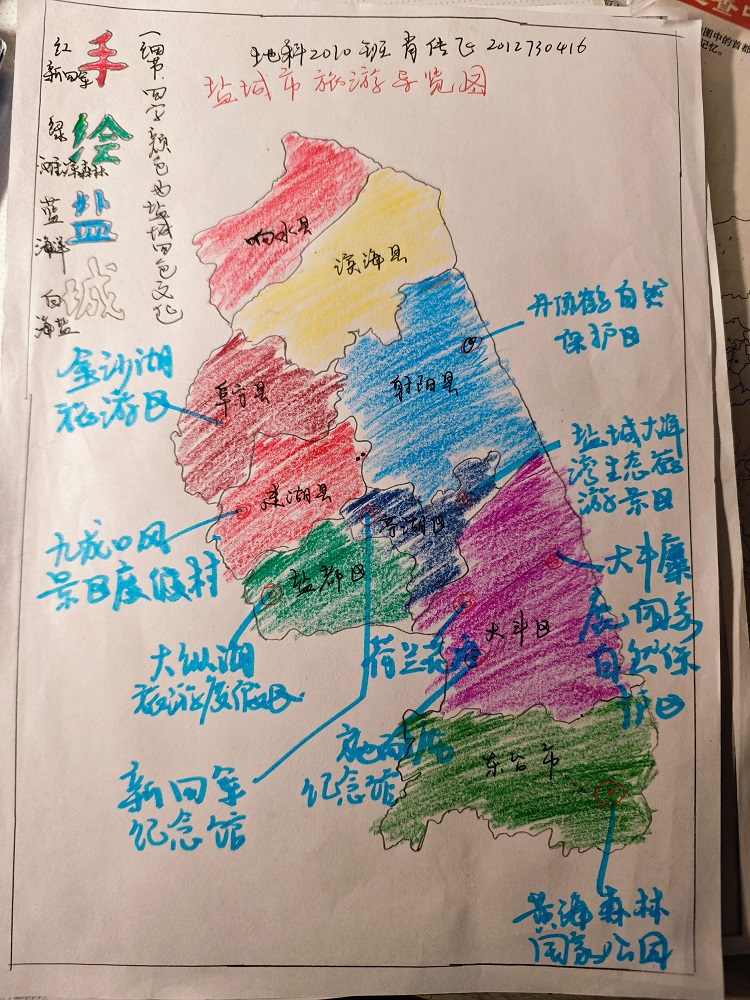 地科2010班肖传飞 2012730416
盐城市旅游导览图
手绘盐城
红
新四军
绿
滩涂森林
蓝
海洋
白
海盐
(细节:四字颜色为盐城四色文化
响水县
滨海县
阜宁县
射阳县
建湖县
亭湖区
盐都区
大丰区
东台市
丹顶鹤自然
保护区
金沙湖
旅游区
盐城大洋
湾生态旅
游景区
九龙口风
景区度假村
大丰麋
鹿国家
自然保
护区
大纵湖
旅游度假区
荷兰花海
施耐庵
纪念馆
新四军
纪念馆
黄海森林
国家公园
图中的首都
记忆。